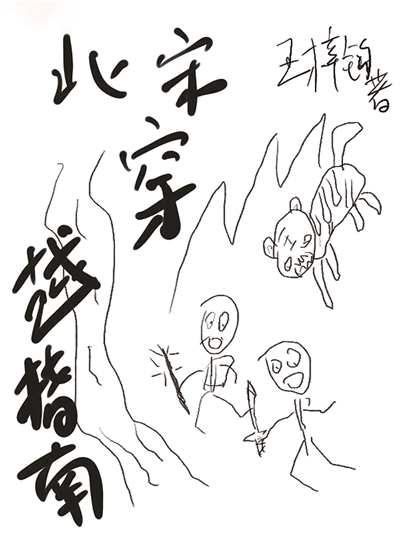 北宋
穿
越指南
王梓钧著